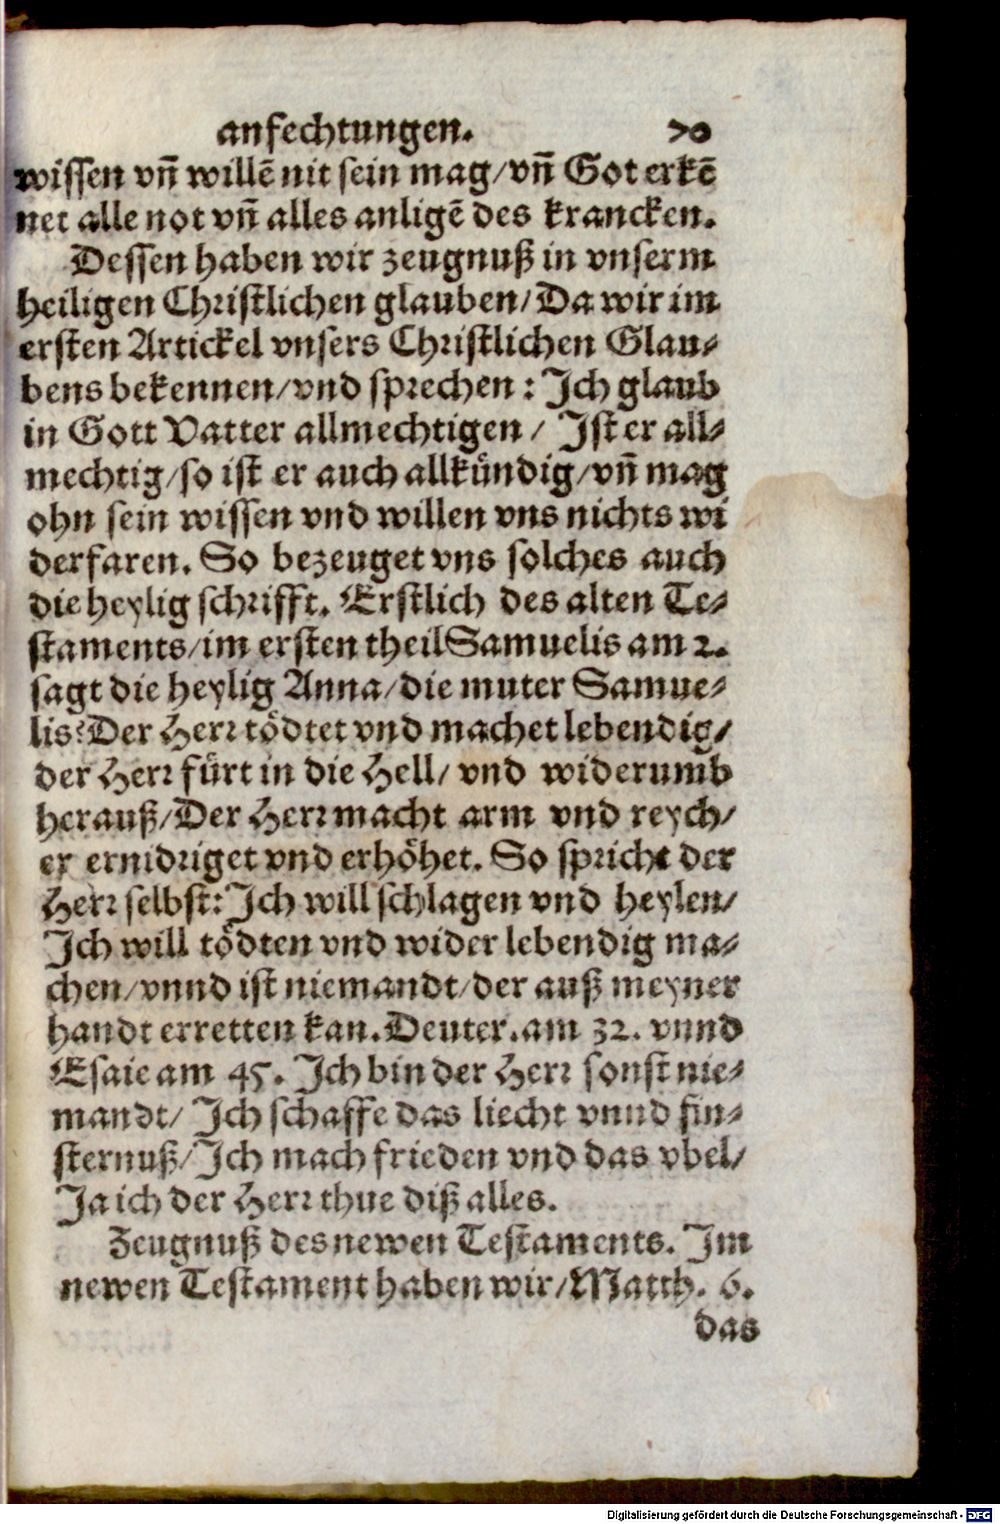 anfechtungen. 70
wissen vñ willē nit sein mag/vñ Got erkē
net alle not vñ alles anligē des krancken.
Dessen haben wir zeugnuß in vnserm
heiligen Christlichen glauben/Da wir im
ersten Artickel vnsers Christlichen Glau-
bens bekennen/vnd sprechen: Ich glaub
in Gott Vatter allmechtigen/ Ist er all-
mechtig/so ist er auch allkündig/vñ mag
ohn sein wissen vnd willen vns nichts wi
derfaren. So bezeuget vns solches auch
die heylig schrifft. Erstlich des alten Te-
staments/im ersten theil Samuelis am 2.
sagt die heylig Anna/die muter Samue-
lis: Der Herr tödtet vnd machet lebendig/
der Herr fürt in die Hell/ vnd widerumb
herauß/Der Herr macht arm vnd reych/
er ernidriget vnd erhöhet. So spricht der
Herr selbst: Ich will schlagen vnd heylen/
Ich will tödten vnd wider lebendig ma-
chen/vnnd ist niemandt/der auß meyner
handt erretten kan. Deuter. am 32. vnnd
Esaie am 45. Ich bin der Herr sonst nie-
mandt/ Ich schaffe das liecht vnnd fin-
sternuß/Ich mach frieden vnd das vbel/
Ja ich der Herr thue diß alles.
Zeugnuß des newen Testaments. Im
newen Testament haben wir/Matth. 6.
das
Digitalisierung gefördert durch die Deutsche Forschungsgemeinschaft - DFG